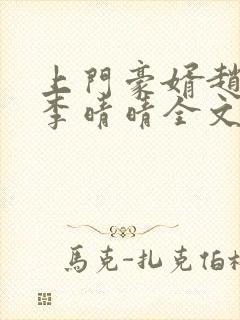 上門豪婿趙
李晴晴全文
馬克-扎克伯格